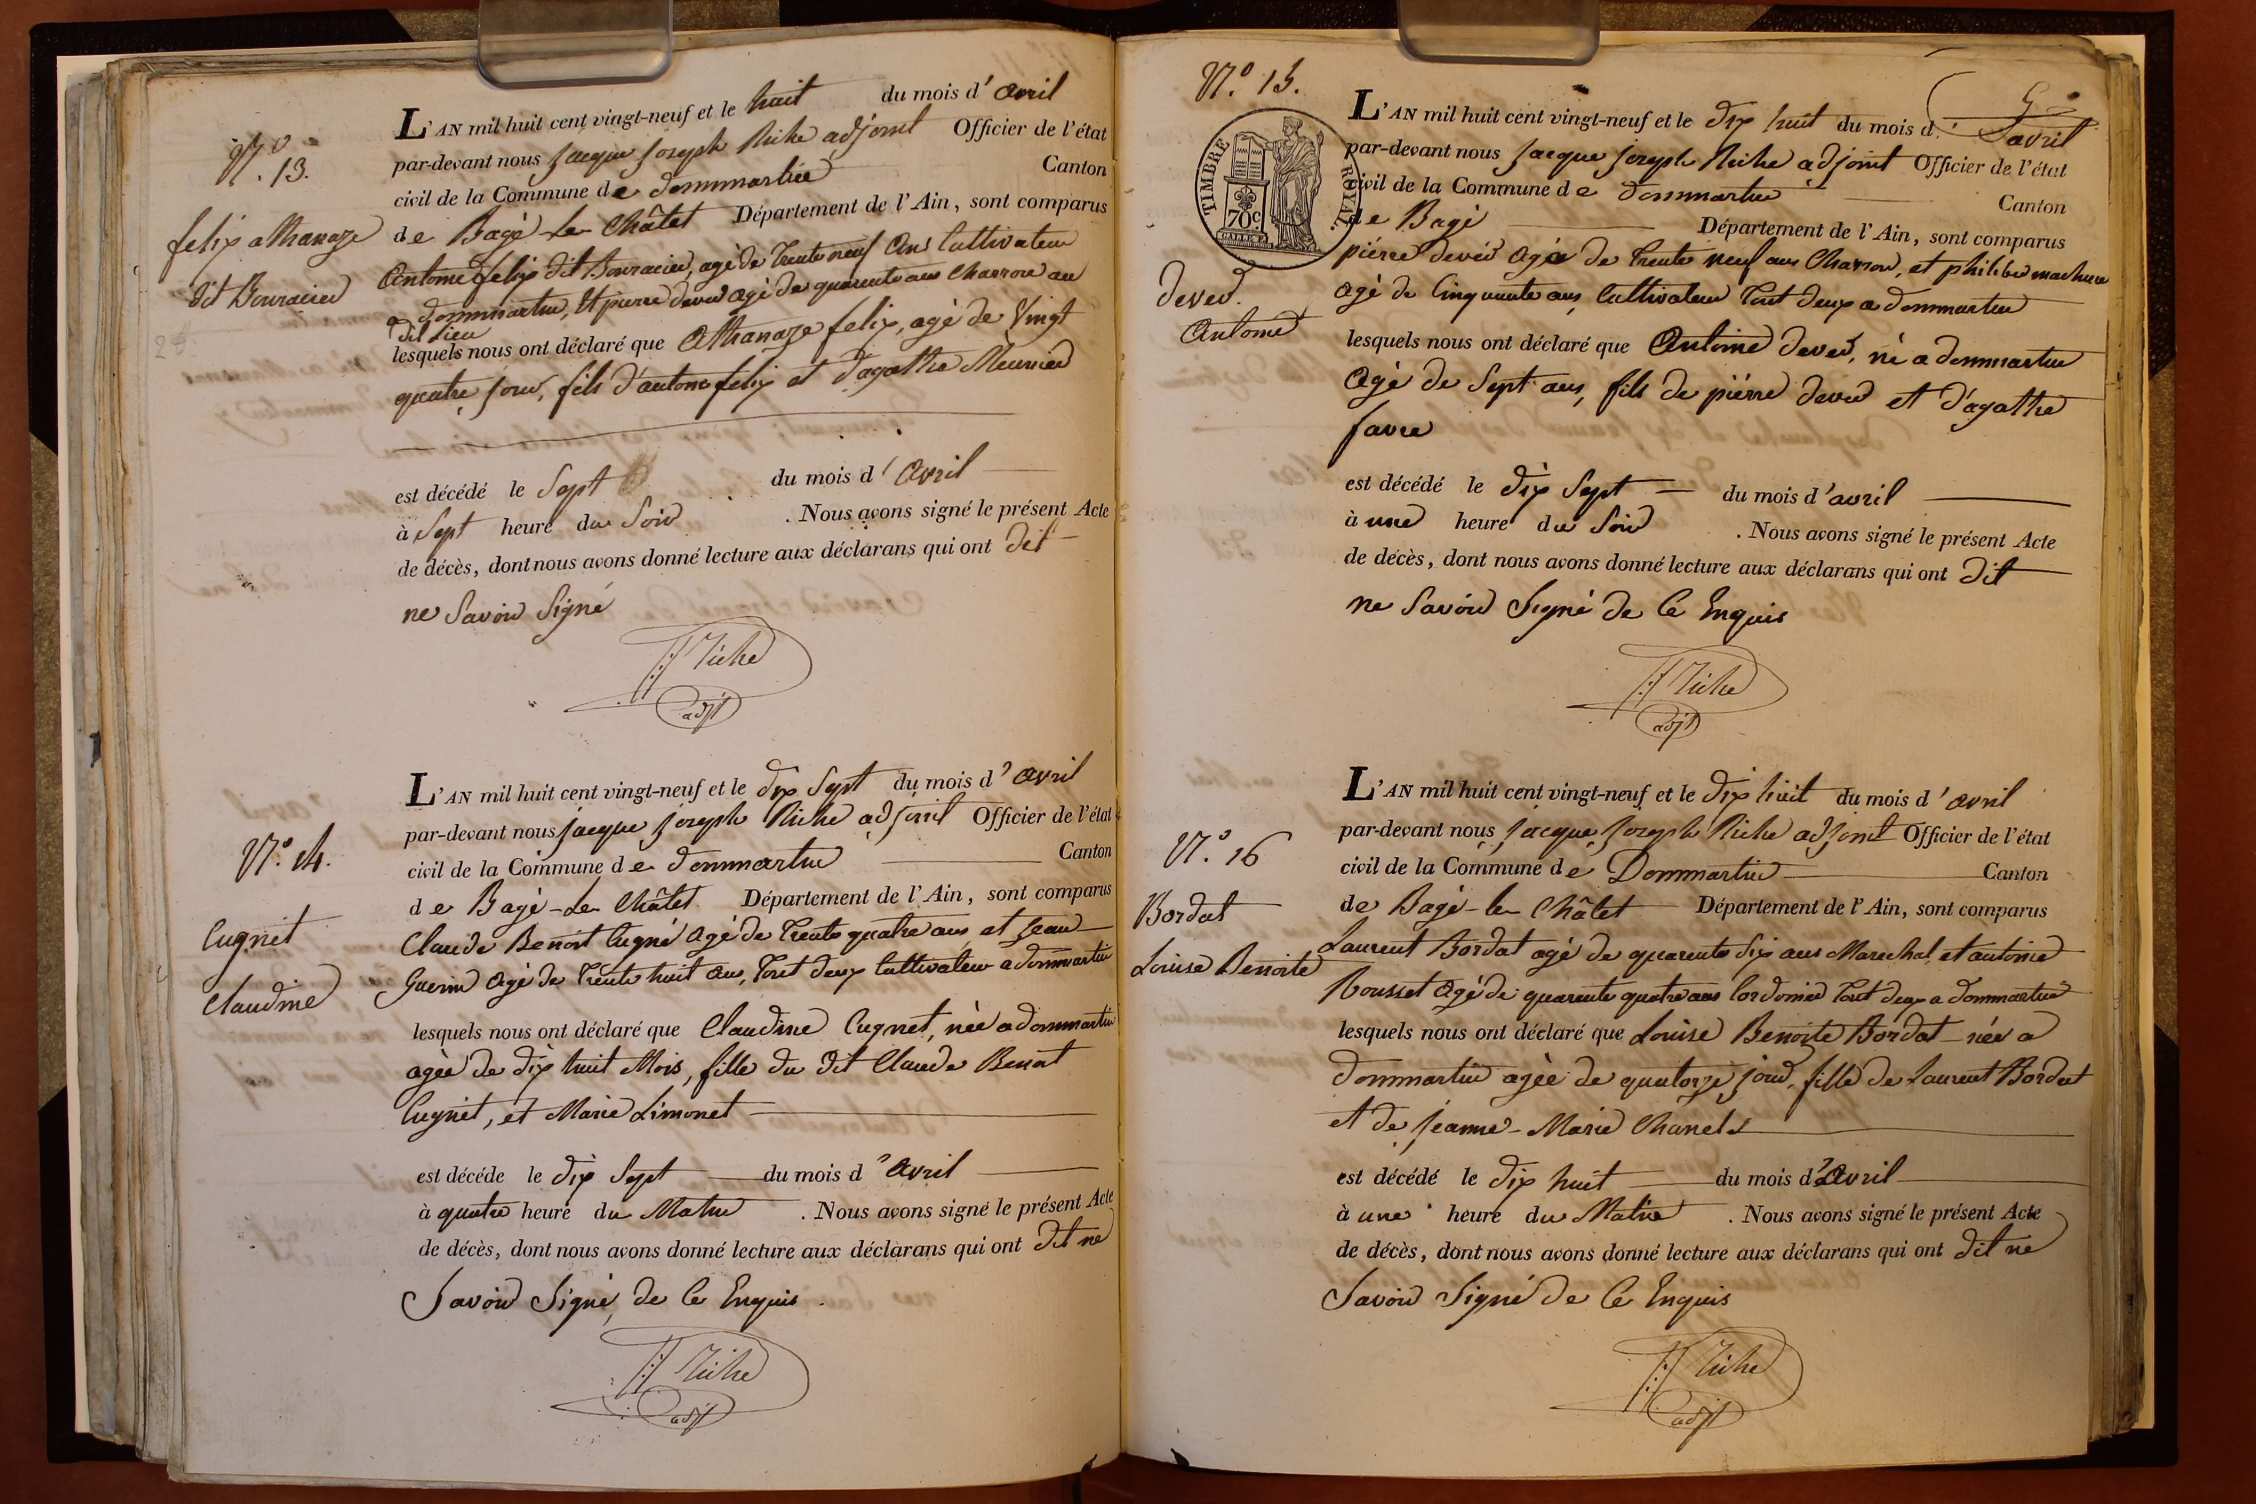 N.° 13.
felix athanaze
dit Bouracier
L'AN mil huit cent vingt-neuf et le huit du mois d'avril
par-devant nous jacque joseph Riche adjoint Officier de l'état
civil de la Commune de dommartin Canton
de Bagé-le-Châtel Département de l'Ain, sont comparus
Antoine felix dit Bouracier, agé de trente neuf ans Cultivateur
a dommartin, Et pierre deved agé de quarante ans Charron au
dit Lieu
lesquels nous ont déclaré que Athanaze felix, agé de Vingt
quatre jour, fils d'antoine felix et d'agathe Meunier
est décédé le Sept du mois d'Avril
à Sept heure du Soir . Nous avons signé le présent Acte
de décès, dont nous avons donné lecture aux déclarans qui ont dit
ne Savoir Signé
JJ Riche
adjt
N.° 14.
Cugnet
Claudine
L'AN mil huit cent vingt-neuf et le dix Sept du mois d'avril
par-devant nous jacque joseph Riche adjoint Officier de l'état
civil de la Commune de dommartin Canton
de Bagé-le-Châtel Département de l'Ain, sont comparus
Claude Benoit Cugné agé de trente quatre ans et jean
Guerin agé de trente huit ans, tout deux Cultivateur a dommartin
lesquels nous ont déclaré que Claudine Cugnet, née a dommartin
agée de dix huit Mois, fille du dit Claude Benoit
Cugnet, et Marie Limonet
est décéde le dix Sept du mois d'Avril
à quatre heure du Matin . Nous avons signé le présent Acte
de décès, dont nous avons donné lecture aux déclarans qui ont dit ne
Savoir Signé, de Ce Enquis
JJ Riche
adjt
N.° 15.
TIMBRE ROYAL
70c
deved.
Antoine
L'AN mil huit cent vingt-neuf et le dix huit du mois d'avril
par-devant nous jacque joseph Riche adjoint Officier de l'état
civil de la Commune de dommartin Canton
de Bagé Département de l'Ain, sont comparus
piérre deved agé de trente neuf ans Charron, et philiber
agé de Cinquante ans, Cultivateur tout deux a dommartin
lesquels nous ont déclaré que Antoine deved, né a dommartin
Agé de Sept ans, fils de piérre deved et d'agathe
favre
est décédé le dix Sept du mois d'avril
à une heure du Soir . Nous avons signé le présent Acte
de décès, dont nous avons donné lecture aux déclarans qui ont dit
ne Savoir Signé de Ce Enquis
JJ Riche
adjt
N.° 16
Bordat
Louise Benoite
L'AN mil huit cent vingt-neuf et le dix huit du mois d'avril
par-devant nous jacque joseph Riche adjoint Officier de l'état
civil de la Commune de Dommartin Canton
de Bagé-le-Châtel Département de l'Ain, sont comparus
Laurent Bordat agé de quarente Six ans Marechal, et antoine
Rousset agé de quarente quatre ans Cordonier tout deux a dommartin
lesquels nous ont déclaré que Louise Benoite Bordat née a
dommartin agée de quatorze jour, fille de Laurent Bordat
et de jeanne-Marie Chanel
est décédé le dix huit du mois d'Avril
à une heure du Matin . Nous avons signé le présent Acte
de décès, dont nous avons donné lecture aux déclarans qui ont dit ne
Savoir Signé de Ce Enquis
JJ Riche
adjt